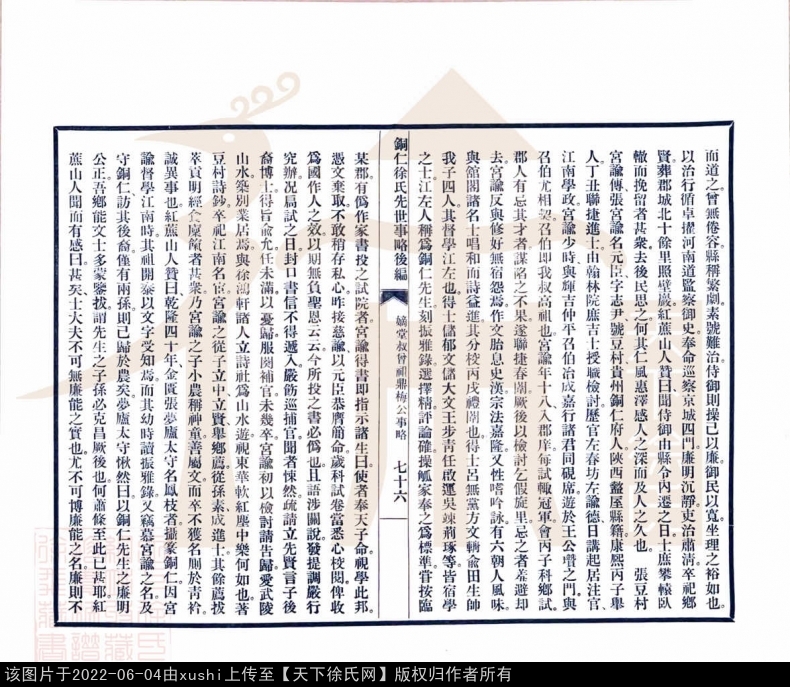 而道之曾無倦容縣稱繁劇素號難治侍御則操己以廉御民以寬坐理之裕如也
以治行循卓擢河南道監察御史奉命巡察京城四門廉明沉靜吏治肅淸卒祀鄉
賢葬郡城北十餘里照壁巖紅蕉山人贊曰聞侍御由縣令內遷之日士庶攀轅臥
轍而挽留者甚衆去後民思之何其仁風惠澤感人之深而及人之久也 張豆村
宮諭傳張宮諭名元臣字志尹號豆村貴州銅仁府人陝西盩厔縣籍康熙丙子舉
人丁丑聯捷進士由翰林院庶吉士授職檢討歷官左春坊左諭德日講起居注官
江南學政宮諭少時與輝吉仲平召伯治成嘉行諸君同硯席遊於王公瓚之門與
召伯尤相契召伯即我叔高祖也宮諭年十八入郡庠每試輒冠軍會丙子科鄉試
郡人有忌其才者謀陷之不果遂聯捷春闈厥後以檢討乞假旋里忌之者羞避却
去宮諭反與修好無宿怨焉作文胎息史漢宗法嘉隆又性嗜吟詠有六朝人風味
與館閣諸名士唱和而詩益進其分校丙戌禮闈也得士呂無黨方文輈俞田生帥
我子四人其督學江左也得士儲郁文儲大文王步靑任啟運吳竦荊琢等皆宿學
之士江左人稱爲銅仁先生刻振雅錄選擇精評論確操觚家奉之爲標準甞按臨
銅仁徐氏先世事略後編
嫡堂叔曾祖鼎梅公事略
七十六
某郡有僞作家書投之試院者宮諭得書即指示諸生曰使者奉天子命視學此邦
憑文棄取不敢稍存私心昨接慈諭以元臣恭膺簡命歲科試卷當悉心校閱俾收
爲國作人之效以期無負聖恩云云今所投之書必僞也且語涉關說發提調嚴行
究辦况扃試之日封口書信不得遞入嚴飭巡捕官聞者悚然疏請立先賢言子後
裔博士得旨兪允任未滿以憂歸服闋補官未幾卒宮諭初以檢討請告歸愛武陵
山水築別業居焉與徐鴻軒諸人立詩社爲山水遊視東華軟紅塵中樂何如也著
豆村詩鈔卒祀江南名宦宮諭之子立中立賢舉鄉薦從孫素成進士其餘薦拔
萃貢明經食廩餼者甚衆乃宮諭之子小農稱神童善屬文而卒不獲名厠於靑衿
誠異事也紅蕉山人贊曰乾隆四十年金匱張夢廬太守名鳳枝者攝篆銅仁因宮
諭督學江南時其祖開泰以文字受知焉而其幼時讀振雅錄又竊慕宮諭之名及
守銅仁訪其後裔僅有兩孫則已歸於農矣夢廬太守愀然曰以銅仁先生之廉明
公正吾鄉能文士多蒙鑒拔謂先生之子孫必克昌厥後也何蕭條至此已甚耶紅
蕉山人聞而有感曰甚矣士大夫不可無廉能之實也尤不可博廉能之名廉則不
该图片于2022-06-04由xushi上传至【天下徐氏网】版权归作者所有